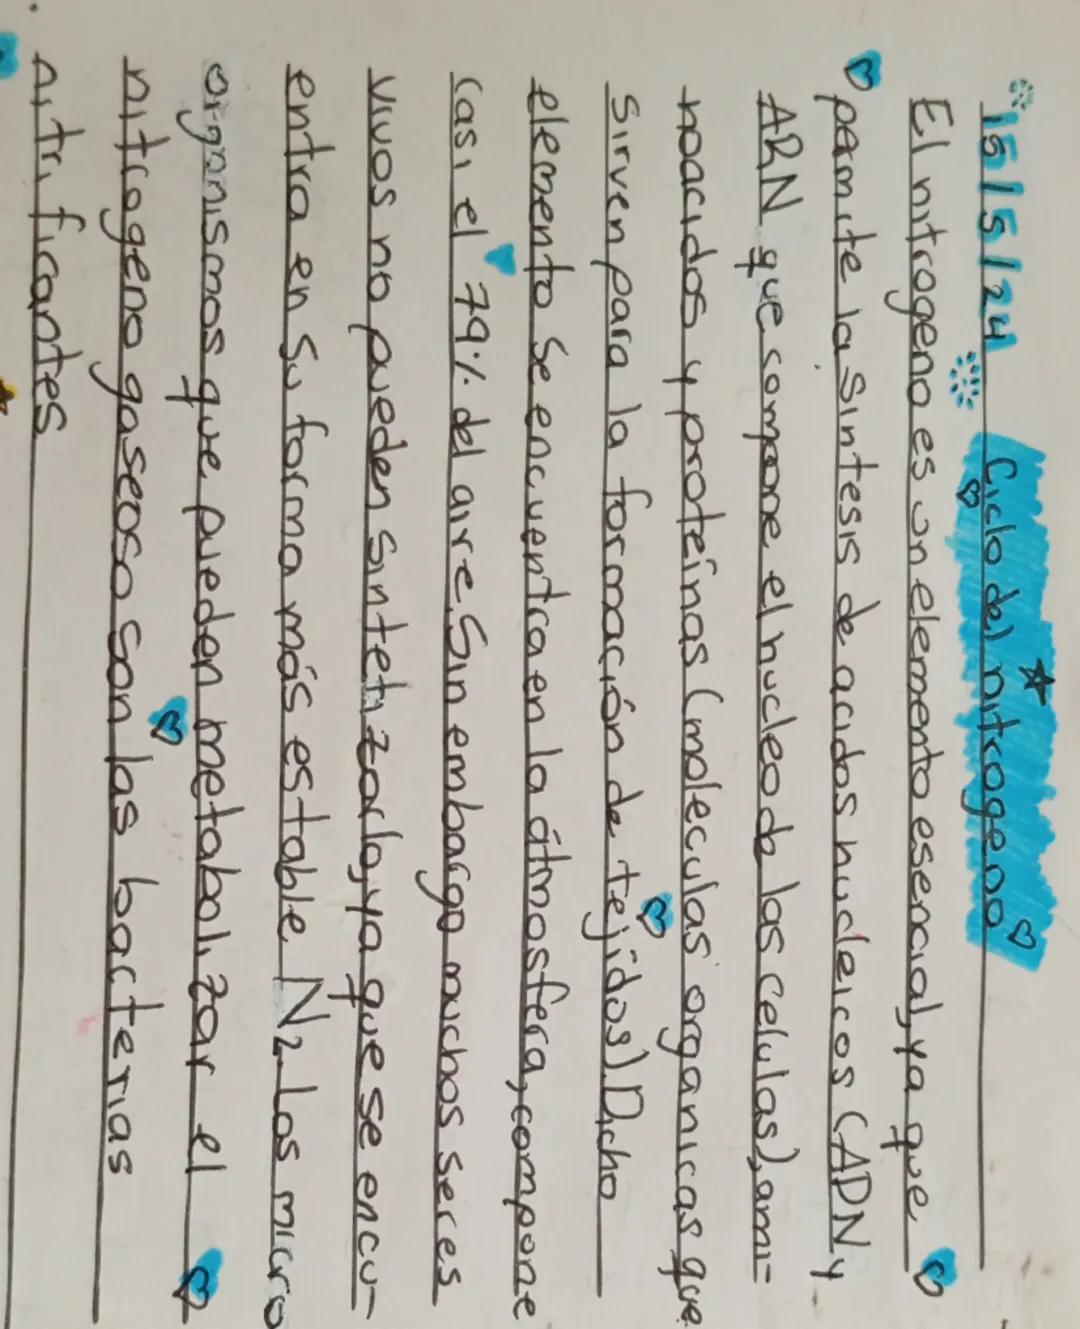 15/5/24 Ciclo del nitrogeno
El nitrogeno es un elemento esencial, ya que
permite la sintesis de acidos nucleicos (ADN y
ARN que compone el nucleo de las celulas), ami-
noacidos y proteínas (moleculas organicas que
sirven para la formación de tejidos). Dicho
elemento se encuentra en la átmosfera, compone
casi el 79% del aire. Sin embargo muchos seres
vivos no pueden sintetizarlo, ya que se encu-
entra en su forma más estable N2. Los micro
organismos que pueden metabolizar el
nitrogeno gaseoso son las bacterias
nitrificantes